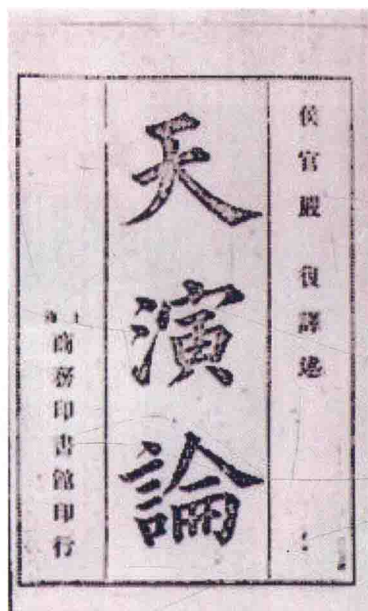 侯官嚴復譯述
天演論
上海
商務印書館印行